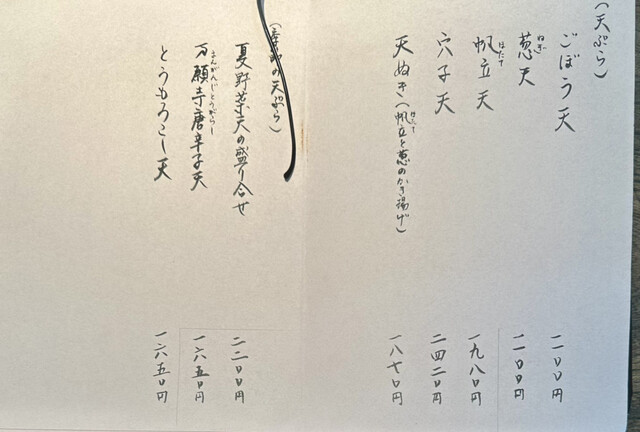 (天ぷら)
ごぼう天 一一〇〇円
葱天 一一〇〇円
ねぎ
帆立天 一九八〇円
ほたて
穴子天 二四二〇円
天ぬき(帆立と葱のかき揚げ) 一八七〇円
ほたて
(季節の天ぷら)
夏野菜天の盛り合せ 二二〇〇円
万願寺唐辛子天 一六五〇円
まんがんじとうがらし
とうもろこし天 一六五〇円